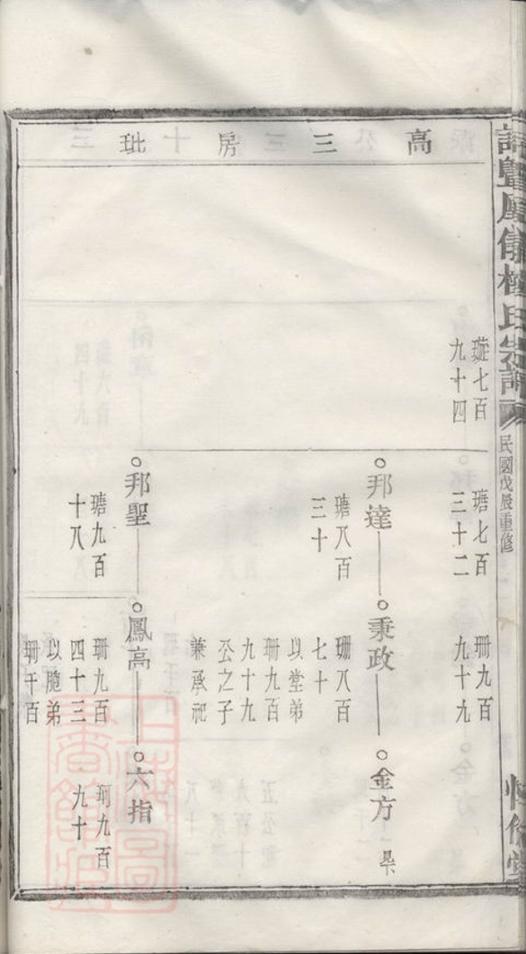 高三房玭
璇七百
九十四
瑭七百
三十二
珊九百
九十九
邦達
瑭八百
三十
秉政
珊八百
七十
以堂弟
珊九百
九十九
公之子
兼承祀
金方
邦聖
瑭九百
十八
鳳高
珊九百
四十三
以隨弟
珊千百
六指
九十
民國戊辰重修
上海圖書館藏